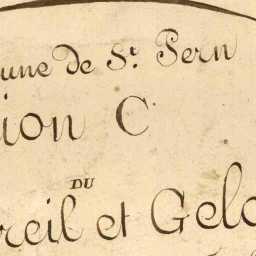 une de S.t Pern
ion C
DU
reil et Gelo